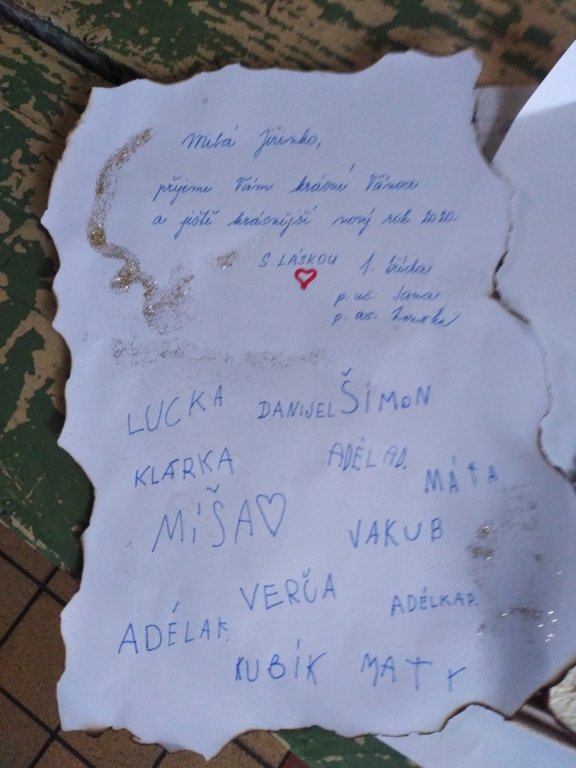 Milá Jiřinko,
přejeme Vám krásné Vánoce
a ještě krásnější nový rok 2020.
S LÁSKOU 1. třída
p. uč. Jana
p. as. Lenka
LUCKA DANIJEL ŠIMON
KLÁRKA ADÉLAD.
MÁTA
MÍŠA♡ VAKUB
VERČA ADÉLKAP.
ADÉLAK.
KUBÍK MATY